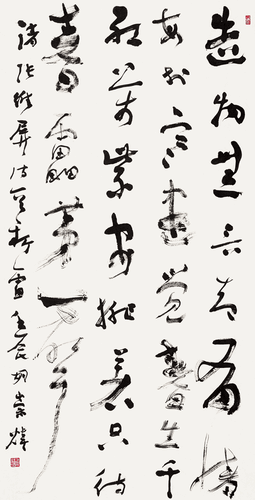 造物無言却有情
每於寒盡覺春生千
紅万紫安排著只待
春雷第一聲
張維屏詩新雷胡崇煒